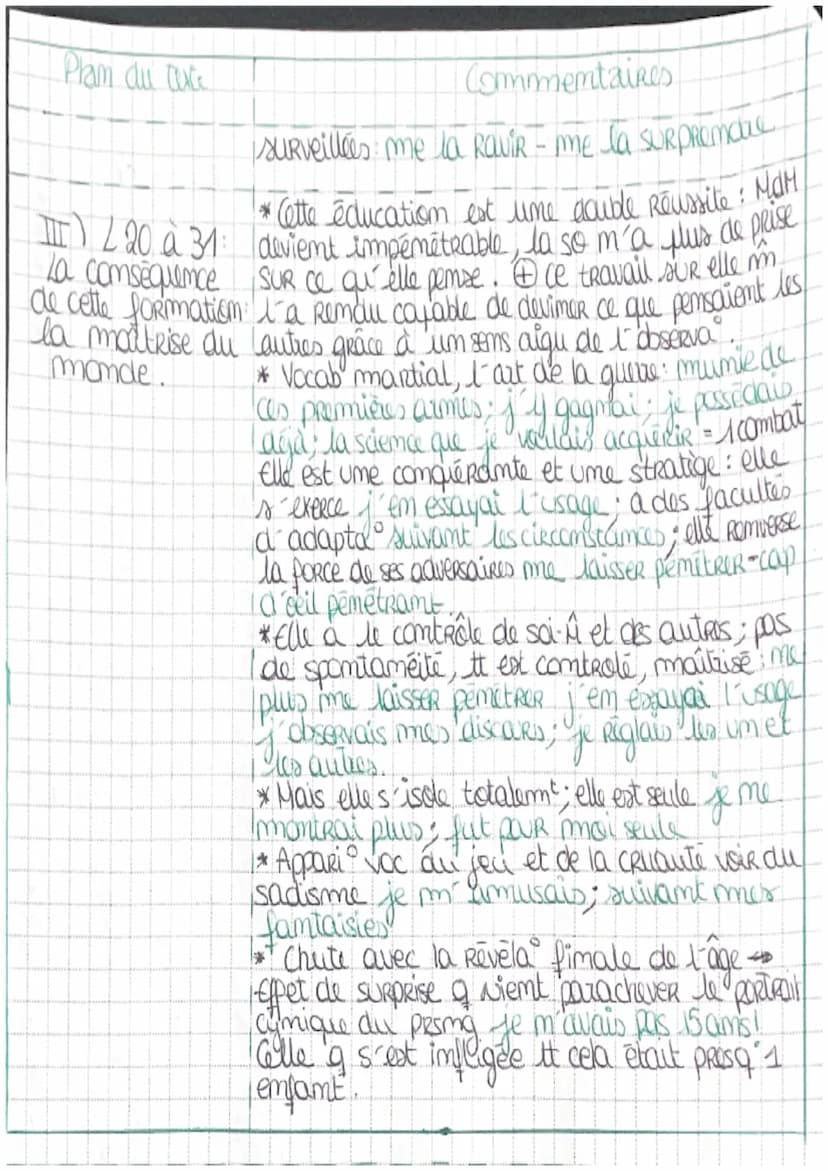 Plan du texte
Commentaires
surveillées : me la ravir - me la surprendre
III) L 20 à 31 :
la conséquence
de cette formation :
la maîtrise du
monde.
* Cette éducation est une double réussite : MdM
devient impénétrable, la so n'a plus de prise
sur ce qu'elle pense. ⊕ ce travail sur elle m̂
l'a rendu capable de deviner ce que pensaient les
autres grâce à un sens aigu de l'observa°.
* Vocab martial, l'art de la guerre : munie de
ces premières armes ; j'y gagnai ; je possédais
déjà ; la science que je voulais acquérir = 1 combat
Elle est une conquérante et une stratège : elle
s'exerce j'en essayai l'usage ; a des facultés
d'adapta° suivant les circonstances ; elle renverse
la force de ses adversaires me laisser pénétrer - cap
d'œil pénétrant.
* Elle a le contrôle de soi-m̂ et des autres ; pas
de spontanéité, tt est contrôlé, maîtrisé : ne
plus me laisser pénétrer j'en essayai l'usage
j'observais mes discours ; je réglais les un et
les autres.
* Mais elle s'isole totalemnt ; elle est seule je me
montrai plus ; fut pour moi seule
* Appari° voc du jeu et de la cruauté voir du
sadisme je m'amusais ; suivant mes
fantaisies
* Chute avec la révéla° finale de l'âge →
Effet de surprise q vient parachever le portrait
cynique du prsng je n'avais pas 15 ans !
Celle q s'est infligée tt cela était presq' 1
enfant.